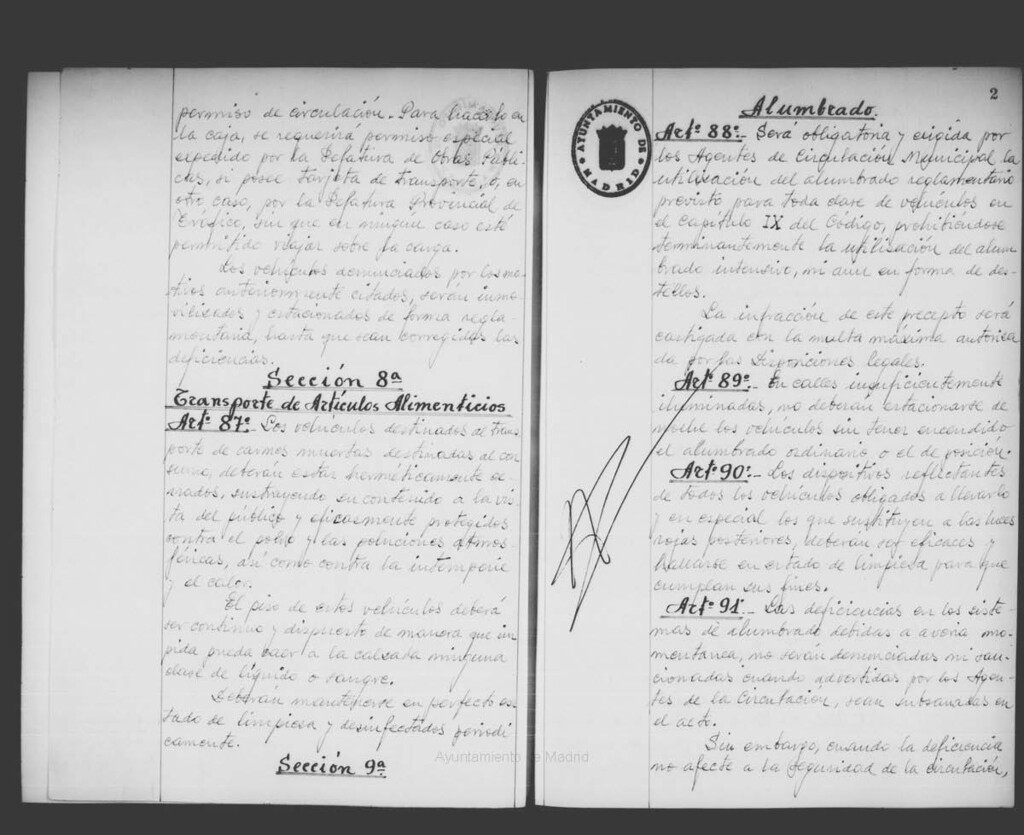 permiso de circulación.- Para hacerlo en
la caja, se requerirá permiso especial
expedido por la Jefatura de Obras Públi-
cas, si posee tarjeta de transporte, o, en
otro caso, por la Jefatura Provincial de
Tráfico, sin que en ningun caso esté
permitido viajar sobre la carga.
Los vehículos denunciados por los mo-
tivos anteriormente citados, serán inmo-
vilizados y estacionados de forma regla-
mentaria, hasta que sean corregidas las
deficiencias.
Sección 8ª
Transporte de Artículos Alimenticios
Artº 87º.- Los vehículos destinados al trans
porte de carnes muertas destinadas al con
sumo, deberán estar herméticamente ce-
rrados, sustrayendo su contenido a la vis
ta del público y eficazmente protegidos
contra el polvo y las poluciones atmos-
féricas, así como contra la intemperie
y el calor.
El piso de estos vehículos deberá
ser continuo y dispuesto de manera que im
pida pueda caer a la calzada ninguna
clase de líquido o sangre.
Deberán mantenerse en perfecto es
tado de limpieza y desinfectados periodi
camente.
Sección 9ª
2
AYUNTAMIENTO DE MADRID
Alumbrado.
Artº 88º.- Será obligatoria y exigida por
los Agentes de Circulación Municipal la
utilización del alumbrado reglamentario
previsto para toda clase de vehículos en
el Capítulo IX del Código, prohibiéndose
terminantemente la utilización del alum
brado intensivo, ni aun en forma de des-
tellos.
La infracción de este precepto será
castigada con la multa máxima autoriza
da por las Disposiciones legales.
Artº 89º.- En calles insuficientemente
iluminadas, no deberán estacionarse de
noche los vehículos sin tener encendido
el alumbrado ordinario o el de posición.
Artº 90º.- Los dispositivos reflectantes
de todos los vehículos obligados a llevarlo
y en especial los que sustituyen a las luces
rojas posteriores, deberán ser eficaces y
hallarse en estado de limpieza para que
cumplan sus fines.
Artº 91º.- Las deficiencias en los siste-
mas de alumbrado debidas a avería mo-
mentánea, no serán denunciadas ni san-
cionadas cuando advertidas por los Agen-
tes de la Circulación, sean subsanadas en
el acto.
Sin embargo, cuando la deficiencia
no afecte a la seguridad de la circulación,
Ayuntamiento de Madrid